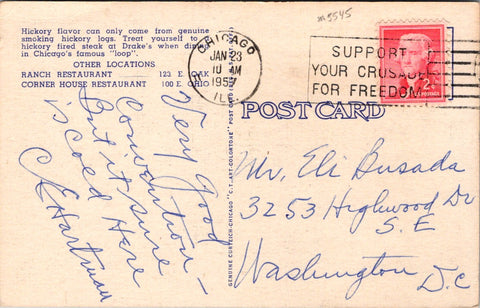 Hickory flavor can only come from genuine
smoking hickory logs. Treat yourself to
hickory fired steak at Drake's when dining
in Chicago's famous "loop".
OTHER LOCATIONS
RANCH RESTAURANT 123 E. OAK
CORNER HOUSE RESTAURANT 100 E. OHIO
Very Good
Convention -
But it sure
is cold Here
CE Hartman
GENUINE CURTEICH-CHICAGO "C.T. ART-COLORTONE" POST CARD
CHICAGO
JAN 23
10 AM
ILL.
SUPPORT
YOUR CRUSADE
FOR FREEDOM
2¢
POST CARD
Mr. Eli Busada
3253 Highwood Dr
S.E
Washington D.C